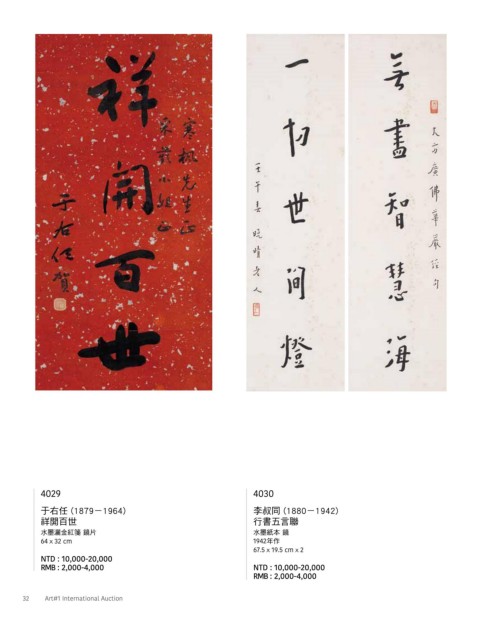 祥開百世
先生正
小姐正
于右任賀
大方廣佛華嚴經句
無盡智慧海
一切世間燈
壬午 晚晴老人
4029
于右任（1879－1964）
祥開百世
水墨灑金紅箋 鏡片
64 x 32 cm
NTD : 10,000-20,000
RMB : 2,000-4,000
4030
李叔同（1880－1942）
行書五言聯
水墨紙本 鏡
1942年作
67.5 x 19.5 cm x 2
NTD : 10,000-20,000
RMB : 2,000-4,000
32 Art#1 International Auction